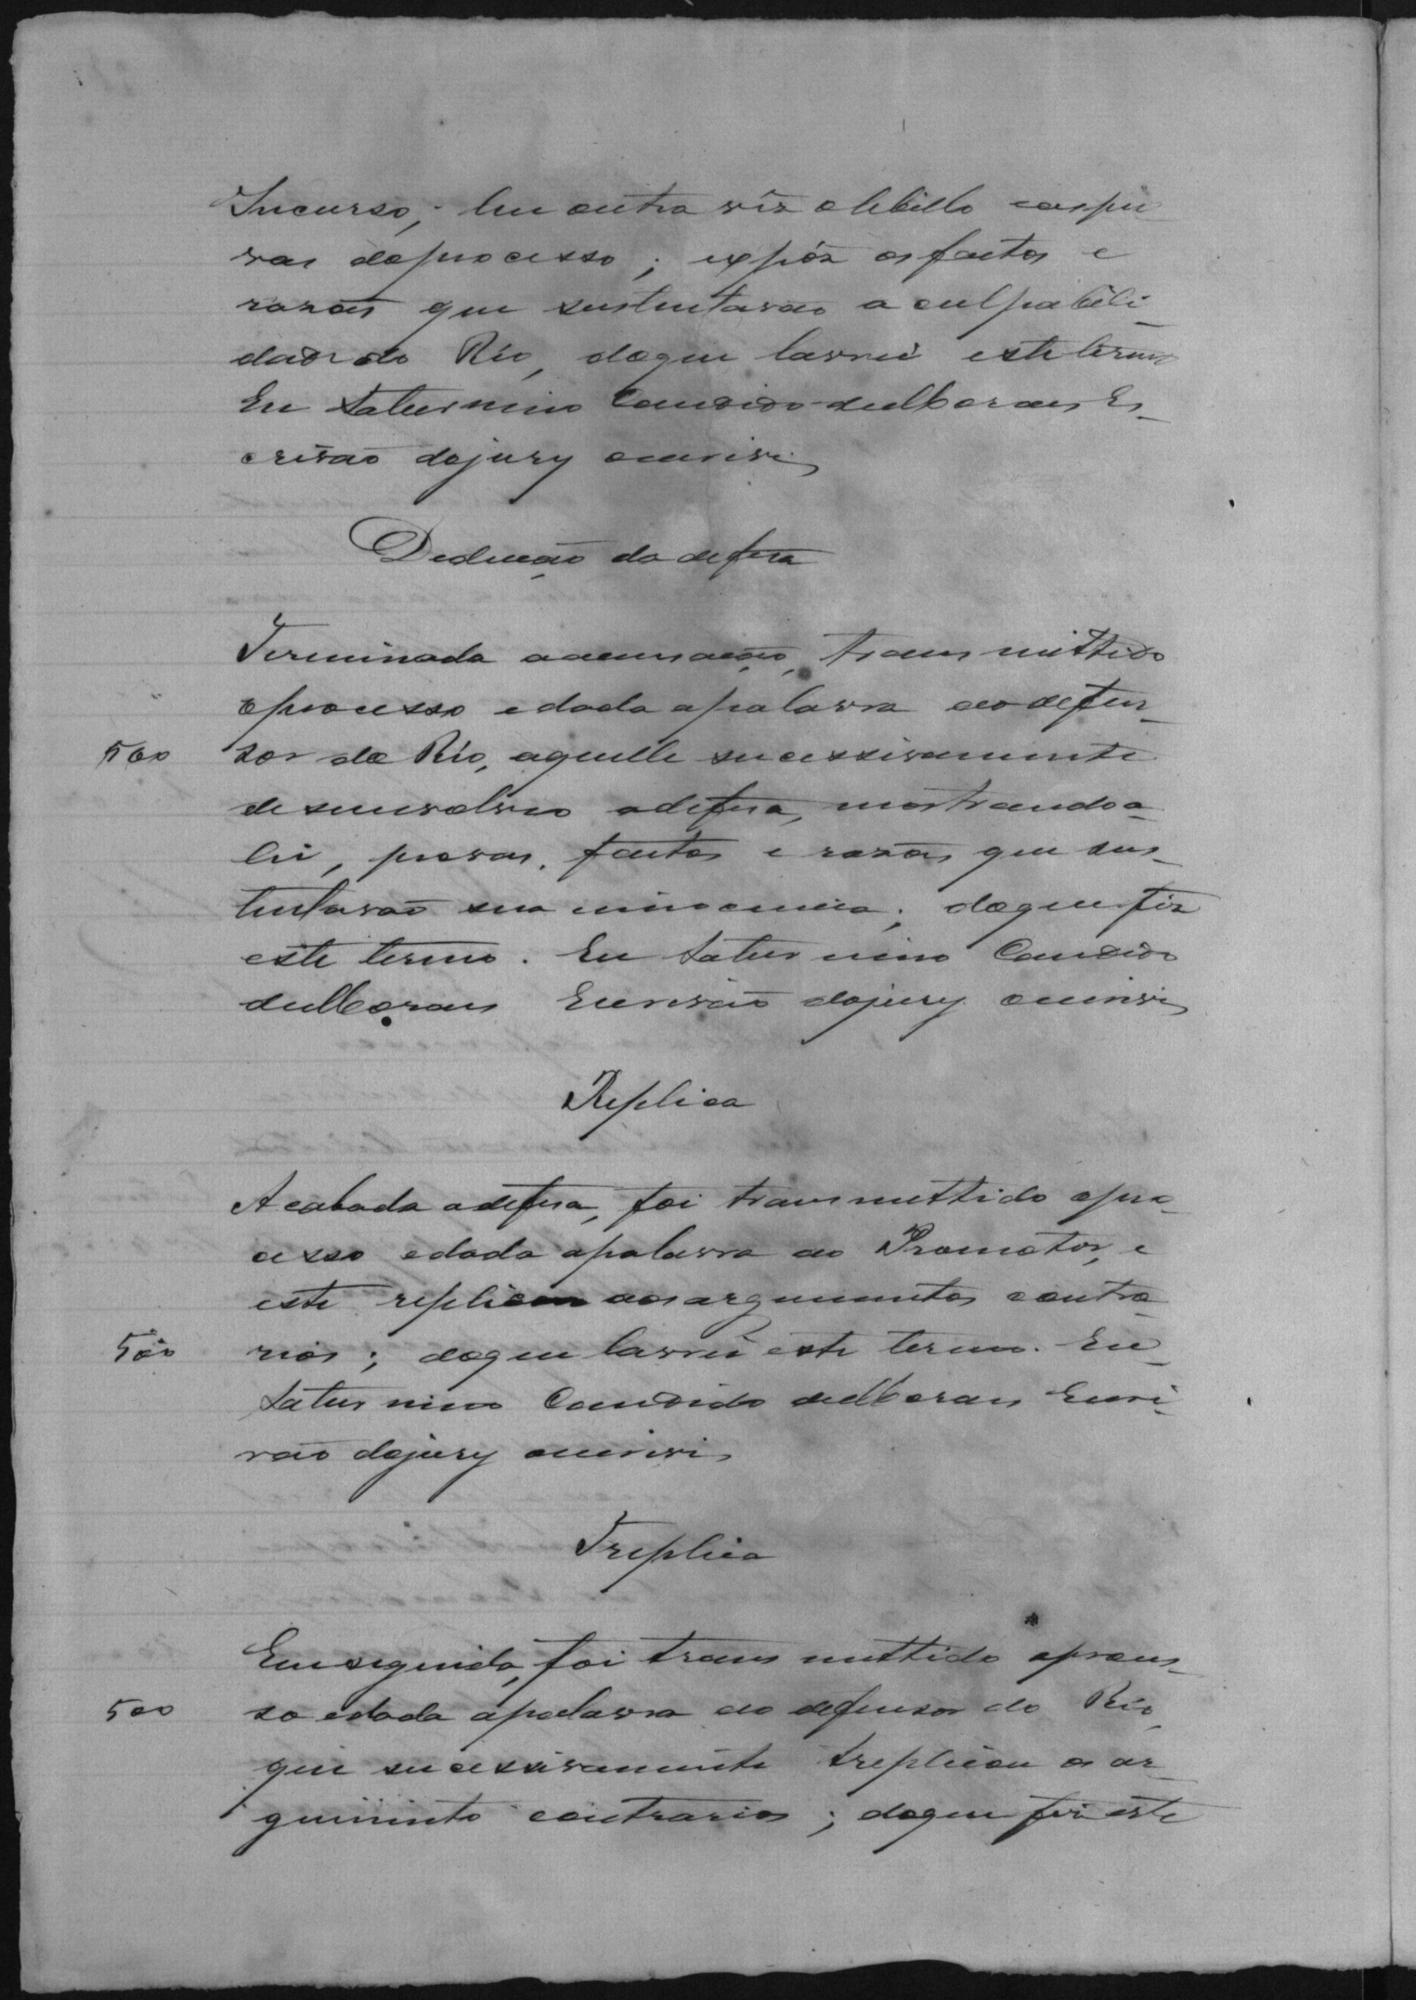 Incurso; leu outra vêz o libello e as pro-
vas do processo; expôz os factos e
razões que sustentavão a culpabili-
dade do Réo, do que lavrei este termo
Eu Saturnino Candido de Moraes Es-
crivão do jury escrevi
Deducção da defesa
Terminada a accusação, transmittido
o processo e dada a palavra ao defen-
500 sor do Réo, aquelle successivamente
desenvolveo a defesa, mostrando a
lei, provas, factos e razões que sus-
tentavão sua innocencia; do que fiz
este termo. Eu Saturnino Candido
de Moraes Escrivão do jury escrevi
Replica
Acabada a defesa, foi transmettido o pro-
cesso e dada a palavra ao Promotor, e
este replicou aos argumentos contra-
500 rios; do que lavrei este termo. Eu
Saturnino Candido de Moraes Escri-
vão do jury escrevi
Treplica
Em seguida, foi transmettido o proces-
500 so e dada a palavra ao defensor do Réo,
que successivamente treplicou os ar-
gumento contrarios; do que fiz este